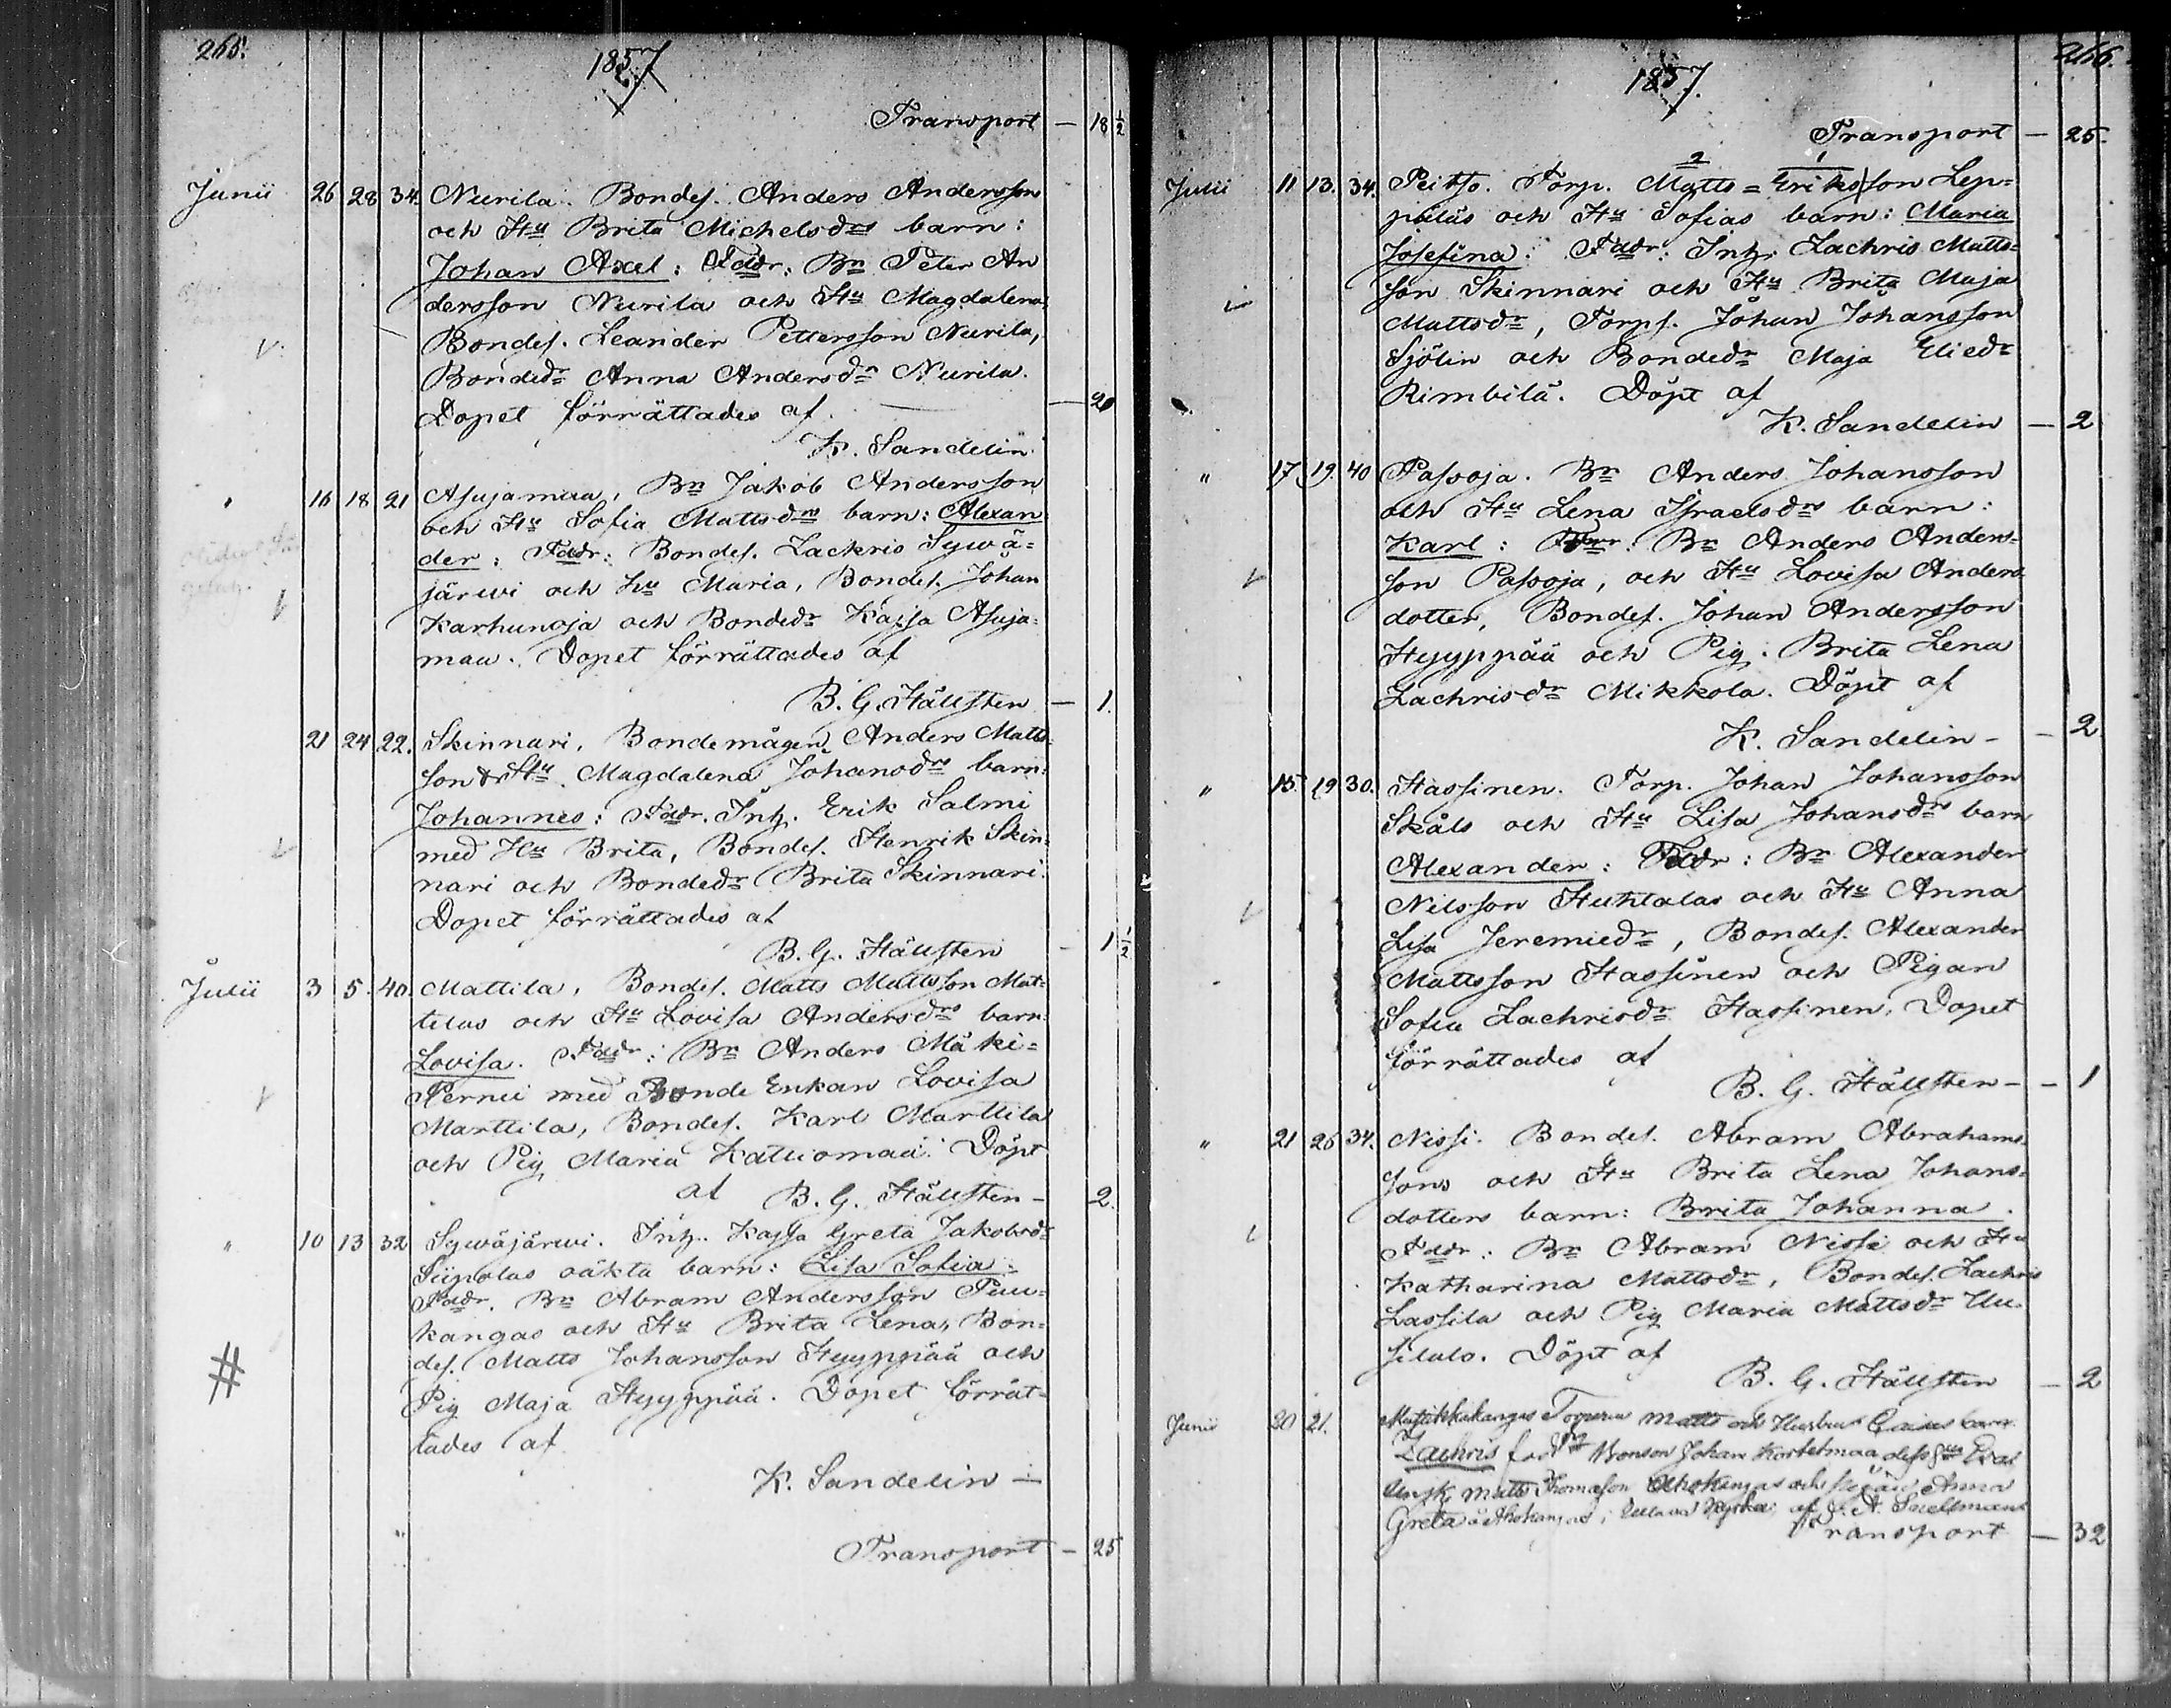 265.
1857
Transport — 18 1/2
Junii 26 28 34. Nurila. Bondes. Anders Andersson
och Hu Brita Michelsdrs barn:
Johan Axel: Faddr: Bn Peter An
dersson Nurila och Hu Magdalena,
Bondes. Leander Pettersson Nurila,
Bondedr Anna Andersdr Nurila.
Dopet förrättades af — 20
K. Sandelin
" 16 18 21 Asujamaa, Bn Jakob Andersson
och Hu Sofia Mattsdrs barn: Alexan
der: Faddr: Bondes. Zachris Sywä=
järwi och hu Maria, Bondes. Johan
Karhunoja och Bondedr Kajsa Asuja=
maa. Dopet förrättades af
B. G. Hällsten — 1.
21 24 22. Skinnari, Bondemågen Anders Matts
son & Hu Magdalena Johansdrs barn:
Johannes: Faddr. Inh. Erik Salmi
med Hu Brita, Bondes. Henrik Skin=
nari och Bondedr Brita Skinnari.
Dopet förrättades af
B. G. Hällsten — 1 1/2
Julii 3 5. 40. Mattila, Bondes. Matts Mattsson Mat=
tilas och Hu Lovisa Andersdrs barn
Lovisa. Faddr: Bn Anders Mäki=
Pernu med Bonde Enkan Lovisa
Marttila, Bondes. Karl Marttila
och Pig Maria Kattiomaa. Döpt
af B. G. Hällsten — 2.
" 10 13 32 Sywäjärwi. Inh. Kajsa Greta Jakobsdr
Siipolas oäkta barn: Lisa Sofia:
Faddr. Bn Abram Andersson Puu=
kangas och Hu Brita Lena, Bon=
des. Matts Johansson Hyyppää och
Pig Maja Hyyppää. Dopet förrät=
tades af
K. Sandelin —
Transport — 25
266.
1857.
Transport — 25.
2 1
Julii 11 13. 34. Peitso. Torp. Matts = Eriksson Lep=
pälas och Hu Sofias barn: Maria
Josefina: Faddr: Inh. Zachris Matts=
son Skinnari och Hu Brita Maja
Mattsdr, Torps. Johan Johansson
Sjölin och Bondedr Maja Eliedr
Rimbilä. Döpt af
K. Sandelin — 2
" 17 19. 40 Passoja. Bn Anders Johansson
och Hu Lena Israelsdrs barn:
Karl: Faddr: Bn Anders Anders=
son Passoja, och Hu Lovisa Anders
dotter, Bondes. Johan Andersson
Hyyppää och Pig. Brita Lena
Zachrisdr Mikkola. Döpt af
K. Sandelin — 2
" 15 19 30. Hassinen. Torp. Johan Johansson
Skåls och Hu Lisa Johansdrs barn
Alexander: Faddr: Bn Alexander
Nilsson Huhtalas och Hu Anna
Lisa Jeremiedr, Bondes. Alexander
Mattsson Hassinen och Pigan
Sofia Zachrisdr Hassinen. Dopet
förrättades af
B. G. Hällsten — 1
" 21 26 34. Nissi. Bondes. Abram Abrahams
sons och Hu Brita Lena Johans=
dotters barn: Brita Johanna.
Faddr: Bn Abram Nissi och Hu
Katharina Mattsdr, Bondes. Zachris
Lassila och Pig Maria Mattsdr Uu
sitalo. Döpt af
B. G. Hällsten — 2
Junii 20 21. Mustikkakangas Torparen Matts och Hustrus barn
Zachris Bonson Johan Kortetmaa dess
Matts Thomasson Ahokangas och Anna
Greta Ahokangas, i af A. Snellman
Transport — 32